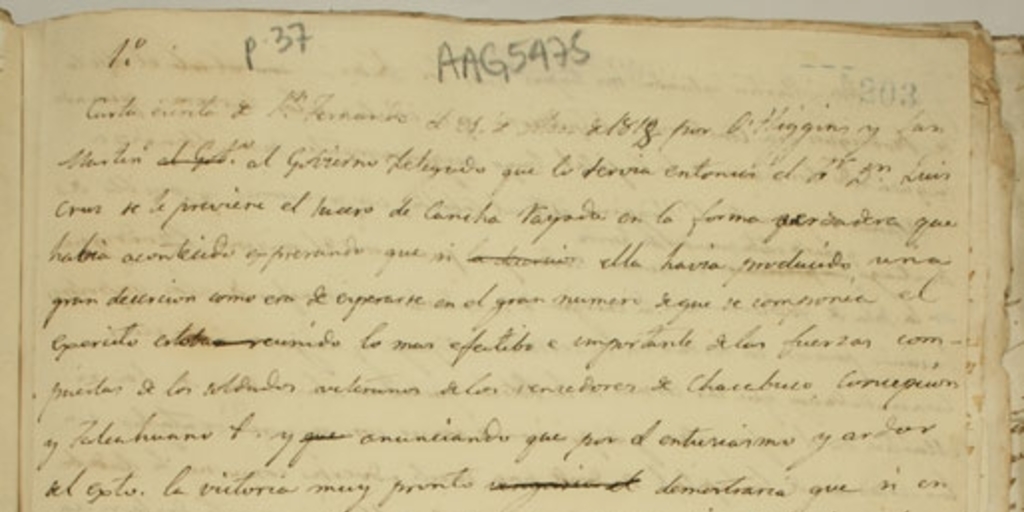 1.º p. 37 AAG5475
Carta escrita de Sn. Fernando el 21. de Marzo de 1818 por O'Higgins y San
Martin al Gobierno Delegado que lo servia entonces el Sr. Dn. Luis
Cruz se le previene el suceso de Cancha Rayada en la forma verdadera que
habia acontecido expresando que si ella havia producido una
gran desercion como era de esperarse en el gran numero de que se componia el
Exercito reunido lo mas efectibo e importante de las fuerzas com-
puestas de los soldados veteranos de los vencedores de Chacabuco Concepcion
y Talcahuano &. y que anunciando que por el entusiasmo y ardor
del exto. la victoria muy pronto demostraria que si en